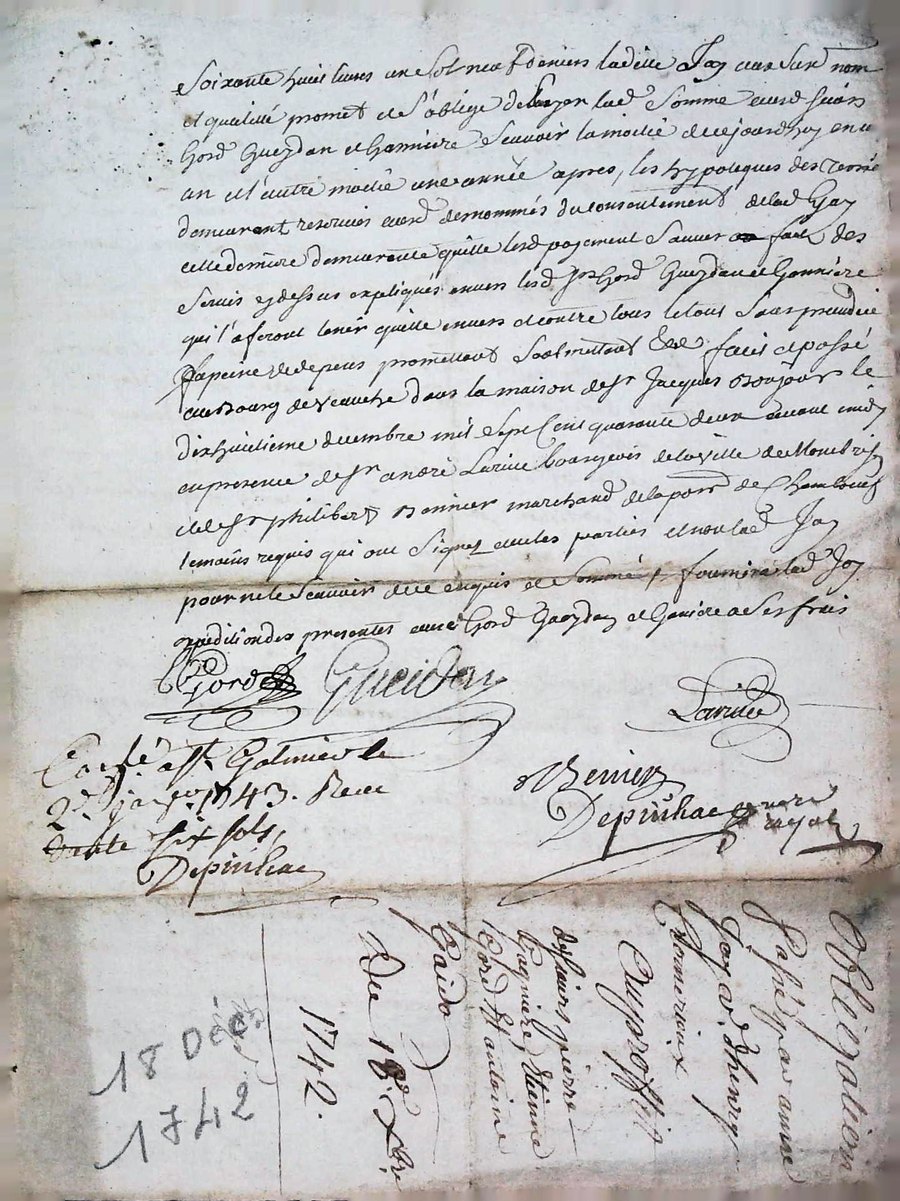 Soixante huit livres un sol neuf deniers ladite Jay aux sus nom
et qualité promet et s'oblige de payer lad somme auxd sieurs
Gord Gueydan et Gannière Scavoir la moitié de ce jourdhuy en un
an et l'autre moitié une année apres, les hypoteques des
demeurant reservées auxd denommés du consentement de lad Jay
cette derniere demeurante quitte lesd payement sauver faits des
servis cy dessus expliqués envers lesd Srs Gord Gueydan et Gannière
qui l'a feront tenir quitte envers et contre tous le tout sans prejudice
a peine de depens promettant soubmettant &c fait et passé
au Bourg de veauche dans la maison de Sr Jacques Boujour le
dixhuitieme decembre mil sept Cent quarante deux avant midy
en presence de Sr andré Larive bourgeois de la ville de Montbrison
et de Sr philibert Benier marchand de la parr de Chambœuf
temoins requis qui ont signé avec les parties et non lad Jay
pour ne le scavoir de ce enquis et sommé, fournira lad Jay
expedition des presentes auxd Gord Gueydan et Ganière a ses frais
Gord Gueidan
Larive
Controllé a St Galmier le
2e janer 1743. Receu
six sols
Depinhac
Benier
Depinhac notaire royal
Obligation
Passé par anne
Jay a d'henry
Au proffit
des sieurs pierre
Gagniere, Etienne
Gord Et antoine
Gaido
Du 18e Xbre
1742.
18 Déc
1742